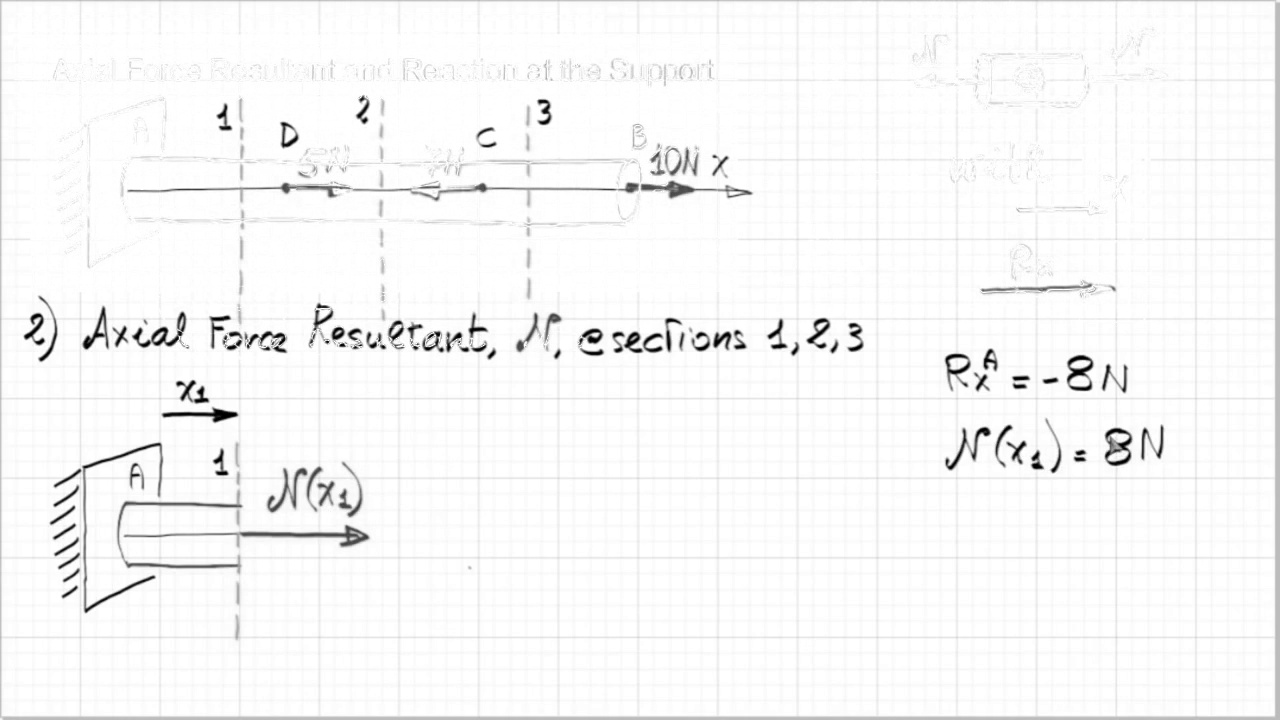 Axial Force Resultant and Reaction at the Support
N N
1 2 3
A D C B
5N 7N 10N x
with
x
Rx
2) Axial Force Resultant, N, @ sections 1, 2, 3
x1
Rx^A = -8N
A 1 N(x1)
N(x1) = 8N